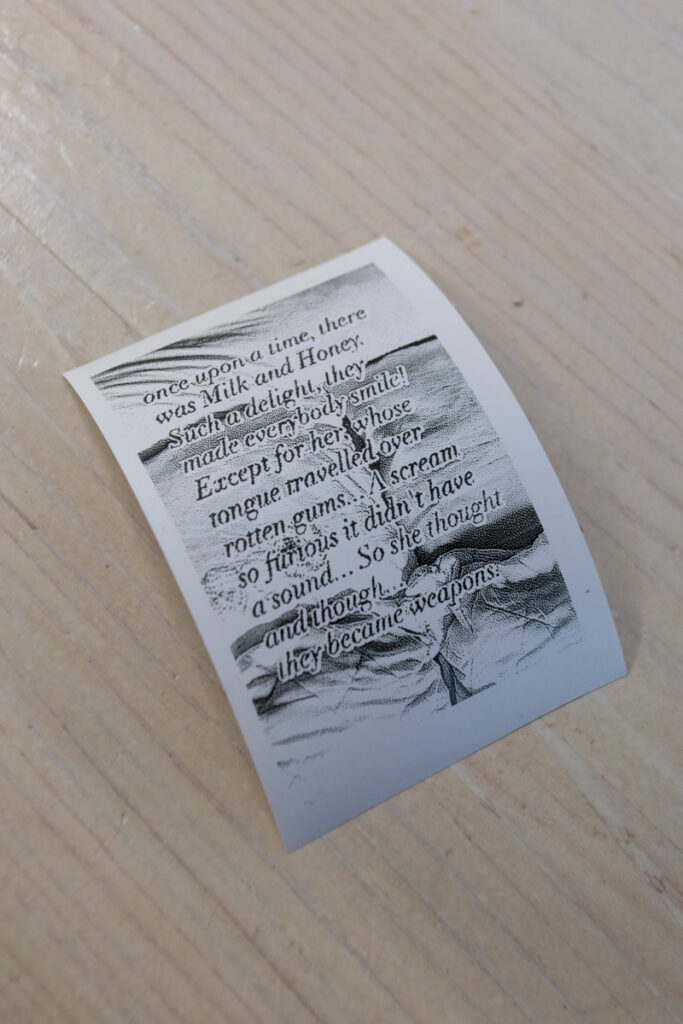 once upon a time, there
was Milk and Honey.
Such a delight, they
made everybody smile!
Except for her, whose
tongue travelled over
rotten gums... A scream
so furious it didn't have
a sound... So she thought
and though...
they became weapons.